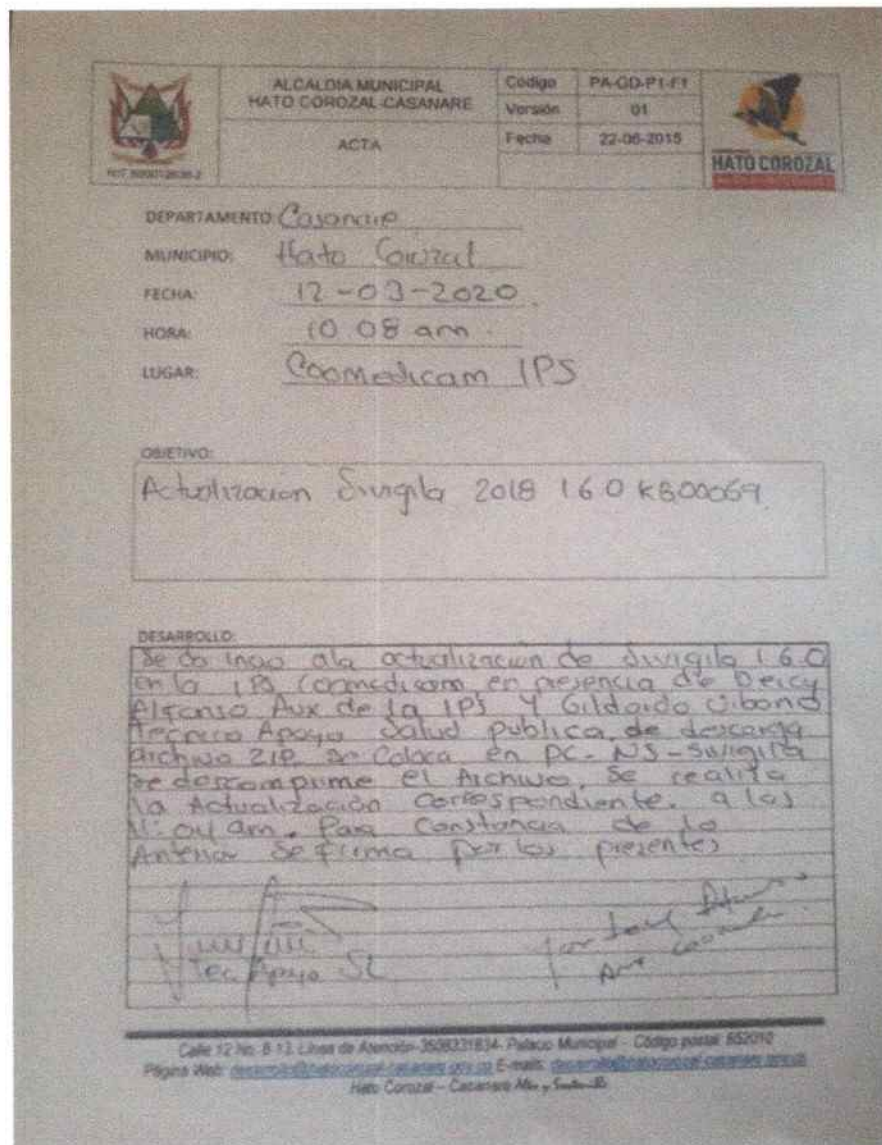 ALCALDIA MUNICIPAL
HATO COROZAL-CASANARE
ACTA
Código PA-GD-P1-F1
Versión 01
Fecha 22-06-2015
HATO COROZAL
DEPARTAMENTO: Casanare
MUNICIPIO: Hato Corozal
FECHA: 12-03-2020
HORA: 10 08 am.
LUGAR: Coomedicam IPS
OBJETIVO:
Actualizacion Sivigila 2018 1 6 0 KB00069
DESARROLLO:
Se da inicio ala actualizacion de Sivigila 1.6.0
en la IPS Coomedicam en presencia de Deicy
Alfonso Aux de la IPS Y Gildardo
Tecnico Apoyo Salud publica, de descarga
Archivo ZIP, se Coloca en PC-NS-Sivigila
se descomprime el Archivo, Se realiza
la Actualización correspondiente. a las
11:04 am. Para Constancia de lo
Anterior Se firma por los presentes
Tec Apoyo
Calle 12 No. 8-13, Línea de Atención-3508331834- Palacio Municipal - Código postal: 852010
Página Web: E-mails:
Hato Corozal - Casanare